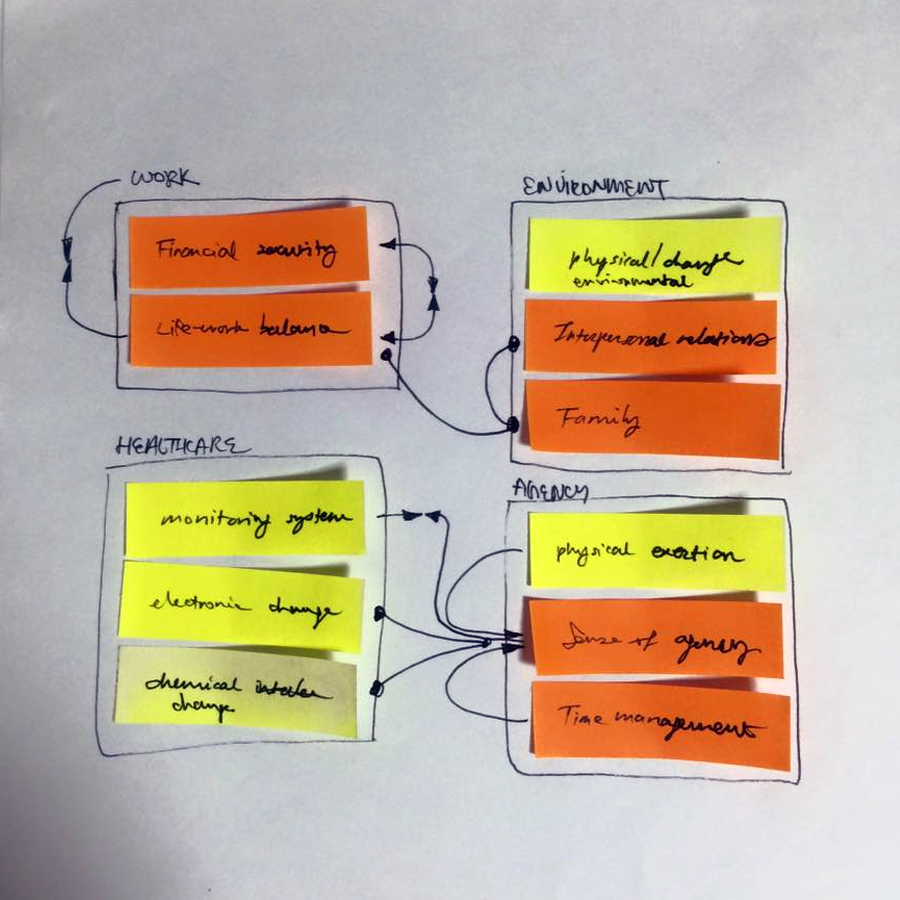 WORK
Financial security
Life-work balance
ENVIRONMENT
physical/change
environmental
Interpersonal relations
Family
HEALTHCARE
monitoring system
electronic change
chemical intake
change
AGENCY
physical exertion
Sense of agency
Time management